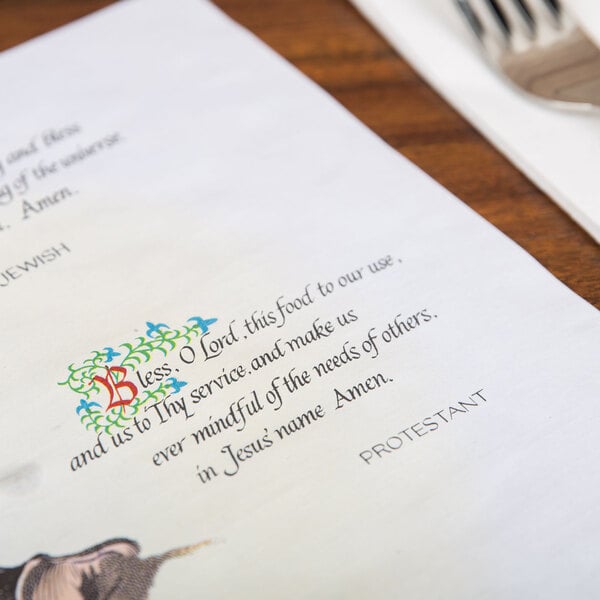 and bless
of the universe
Amen.
JEWISH
Bless, O Lord, this food to our use,
and us to Thy service, and make us
ever mindful of the needs of others,
in Jesus' name Amen.
PROTESTANT